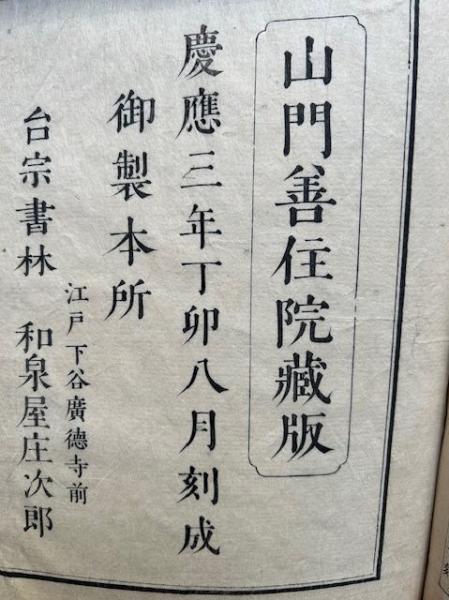 山門善住院藏版
慶應三年丁卯八月刻成
御製本所
江戸下谷廣德寺前
台宗書林 和泉屋庄次郎